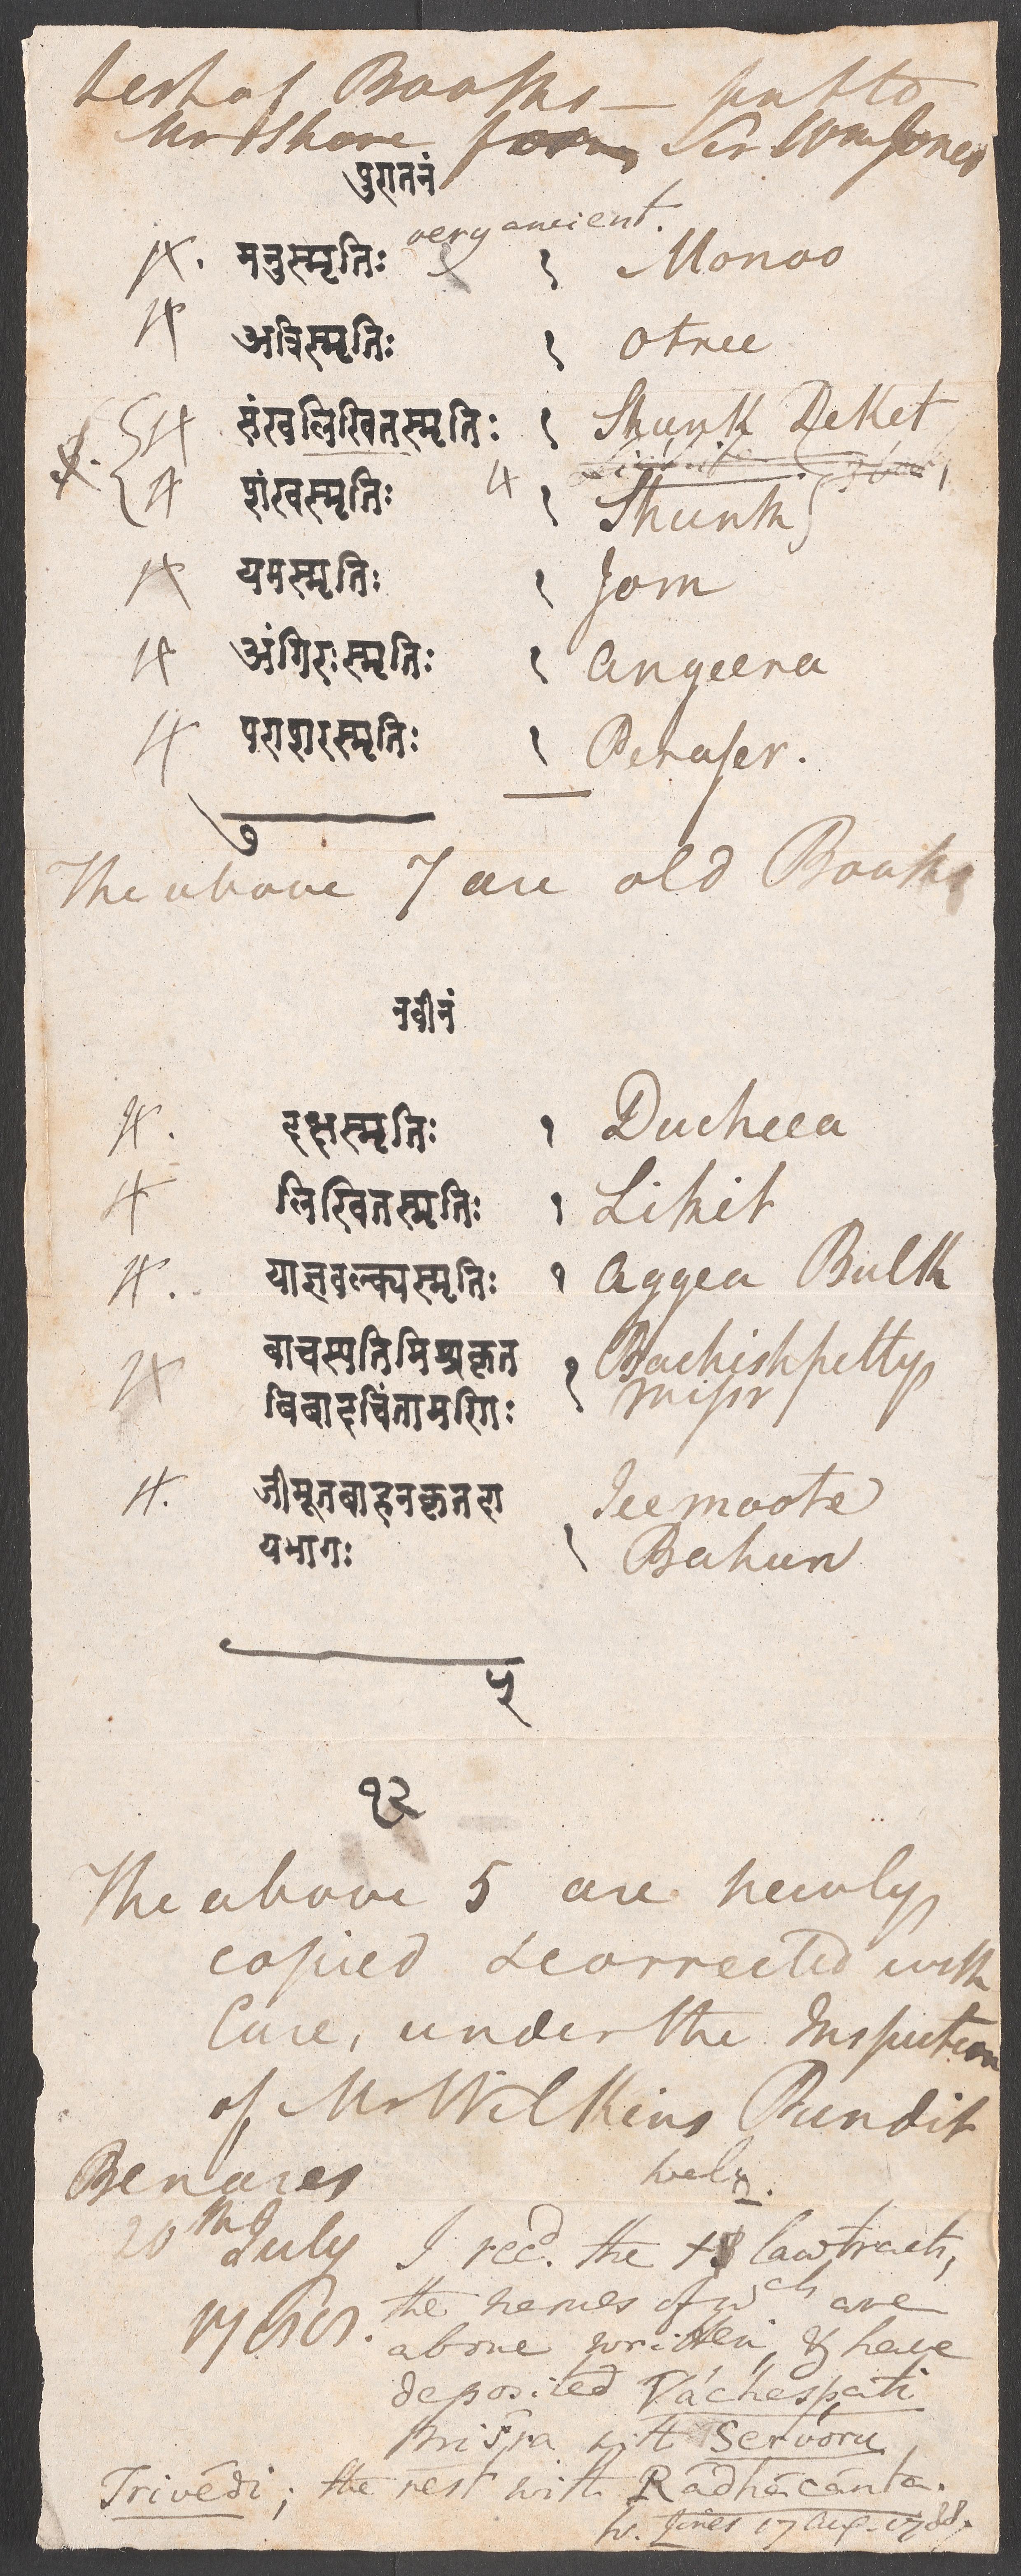 List of Books — sent to
Mr Shore for Sir Wm Jones
पुरातनं
very ancient.
मनुस्मृतिः १ Monoo
अत्रिस्मृतिः १ Otree
संखलिखितस्मृतिः १ Shunk Leket
शंखस्मृतिः १ Shunk
यमस्मृतिः १ Jom
अंगिरःस्मृतिः १ Angeera
पराशरस्मृतिः १ Peraser.
७
The above 7 are old Books
नवीनं
दक्षस्मृतिः १ Ducheea
लिखितस्मृतिः १ Likit
याज्ञवल्क्यस्मृतिः १ Aggea Bulk
बाचस्पतिमिश्रकृत १ Bachishpetty
बिबादचिंतामणिः Misr
जीमूतबाहनकृतदा Jeemoote
यभागः १ Bahun
५
१२
The above 5 are newly
copied & corrected with
Care, under the Inspection
of Mr Wilkins Pundit
Benares
20th July
1788.
I recd. the law tracts,
the names of wch are
above written, & have
deposited Váchespati
Misra with Servóru
Trivédi; the rest with Rádhácánta.
W. Jones 17 Aug. 1788.